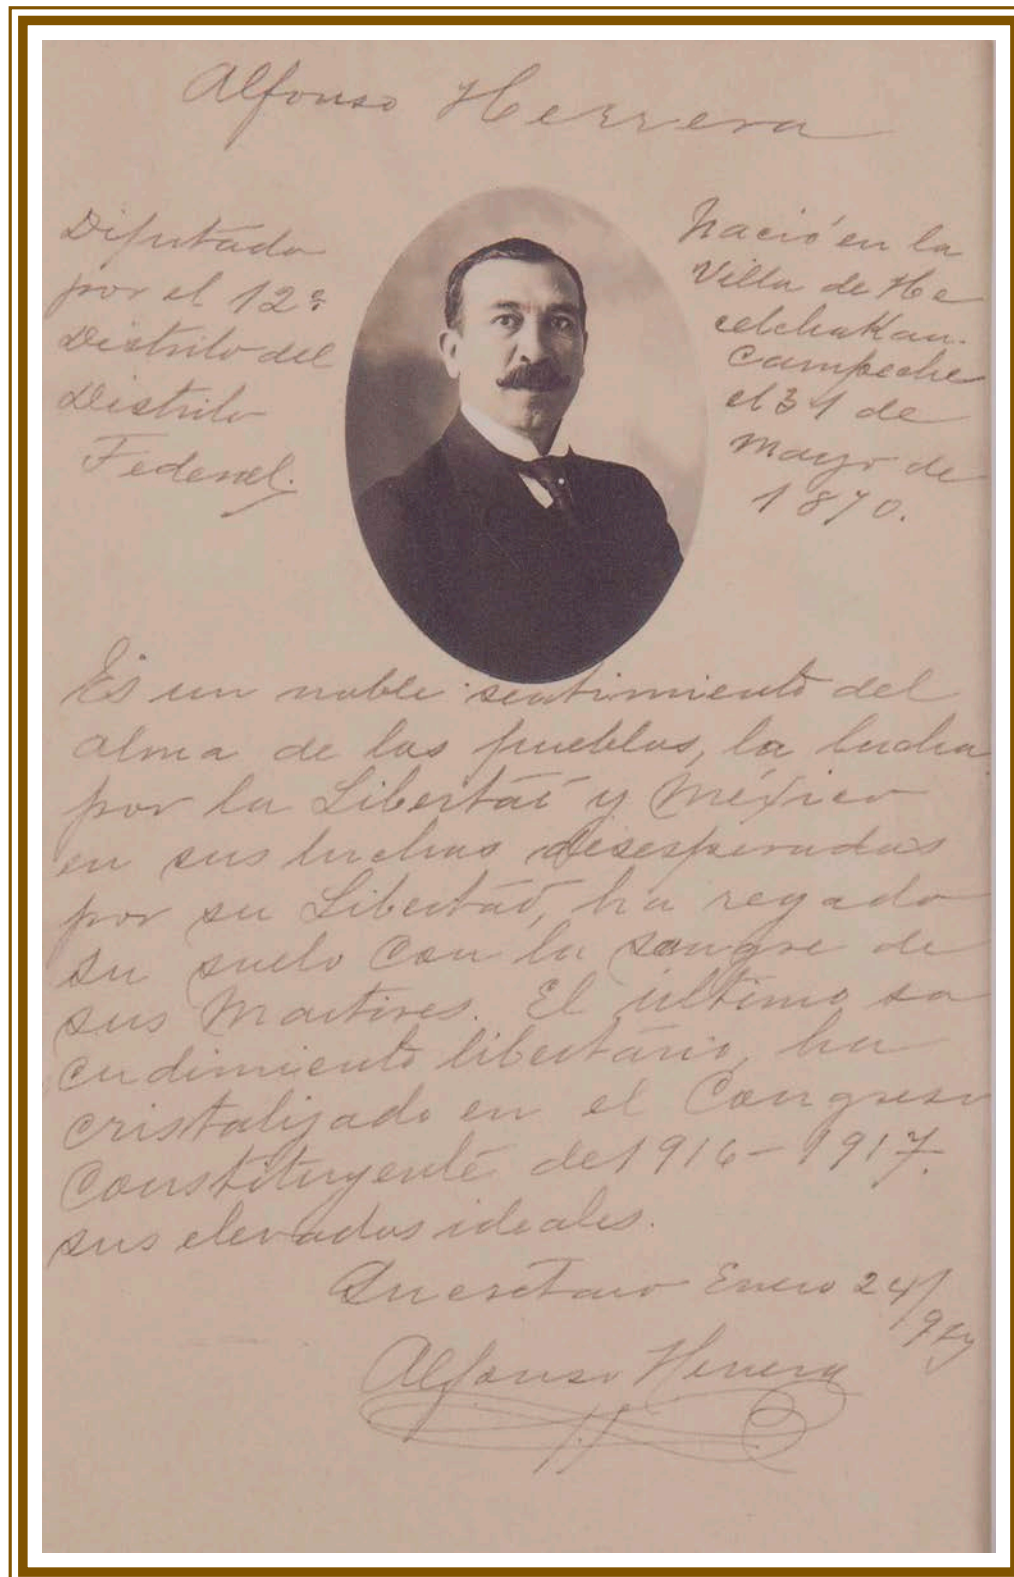 Alfonso Herrera
Diputado
por el 12º
Distrito del
Distrito
Federal.
Nació en la
Villa de He
celchakan.
Campeche
el 31 de
Mayo de
1870.
Es un noble sentimiento del
alma de los pueblos, la lucha
por la Libertad y México
en sus luchas desesperadas
por su Libertad, ha regado
su suelo con la sangre de
sus Martires. El último sa
cudimiento libertário, ha
cristalizado en el Congreso
Constituyente de 1916-1917.
sus elevados ideales.
Querétaro Enero 24/
917
Alfonso Herrera